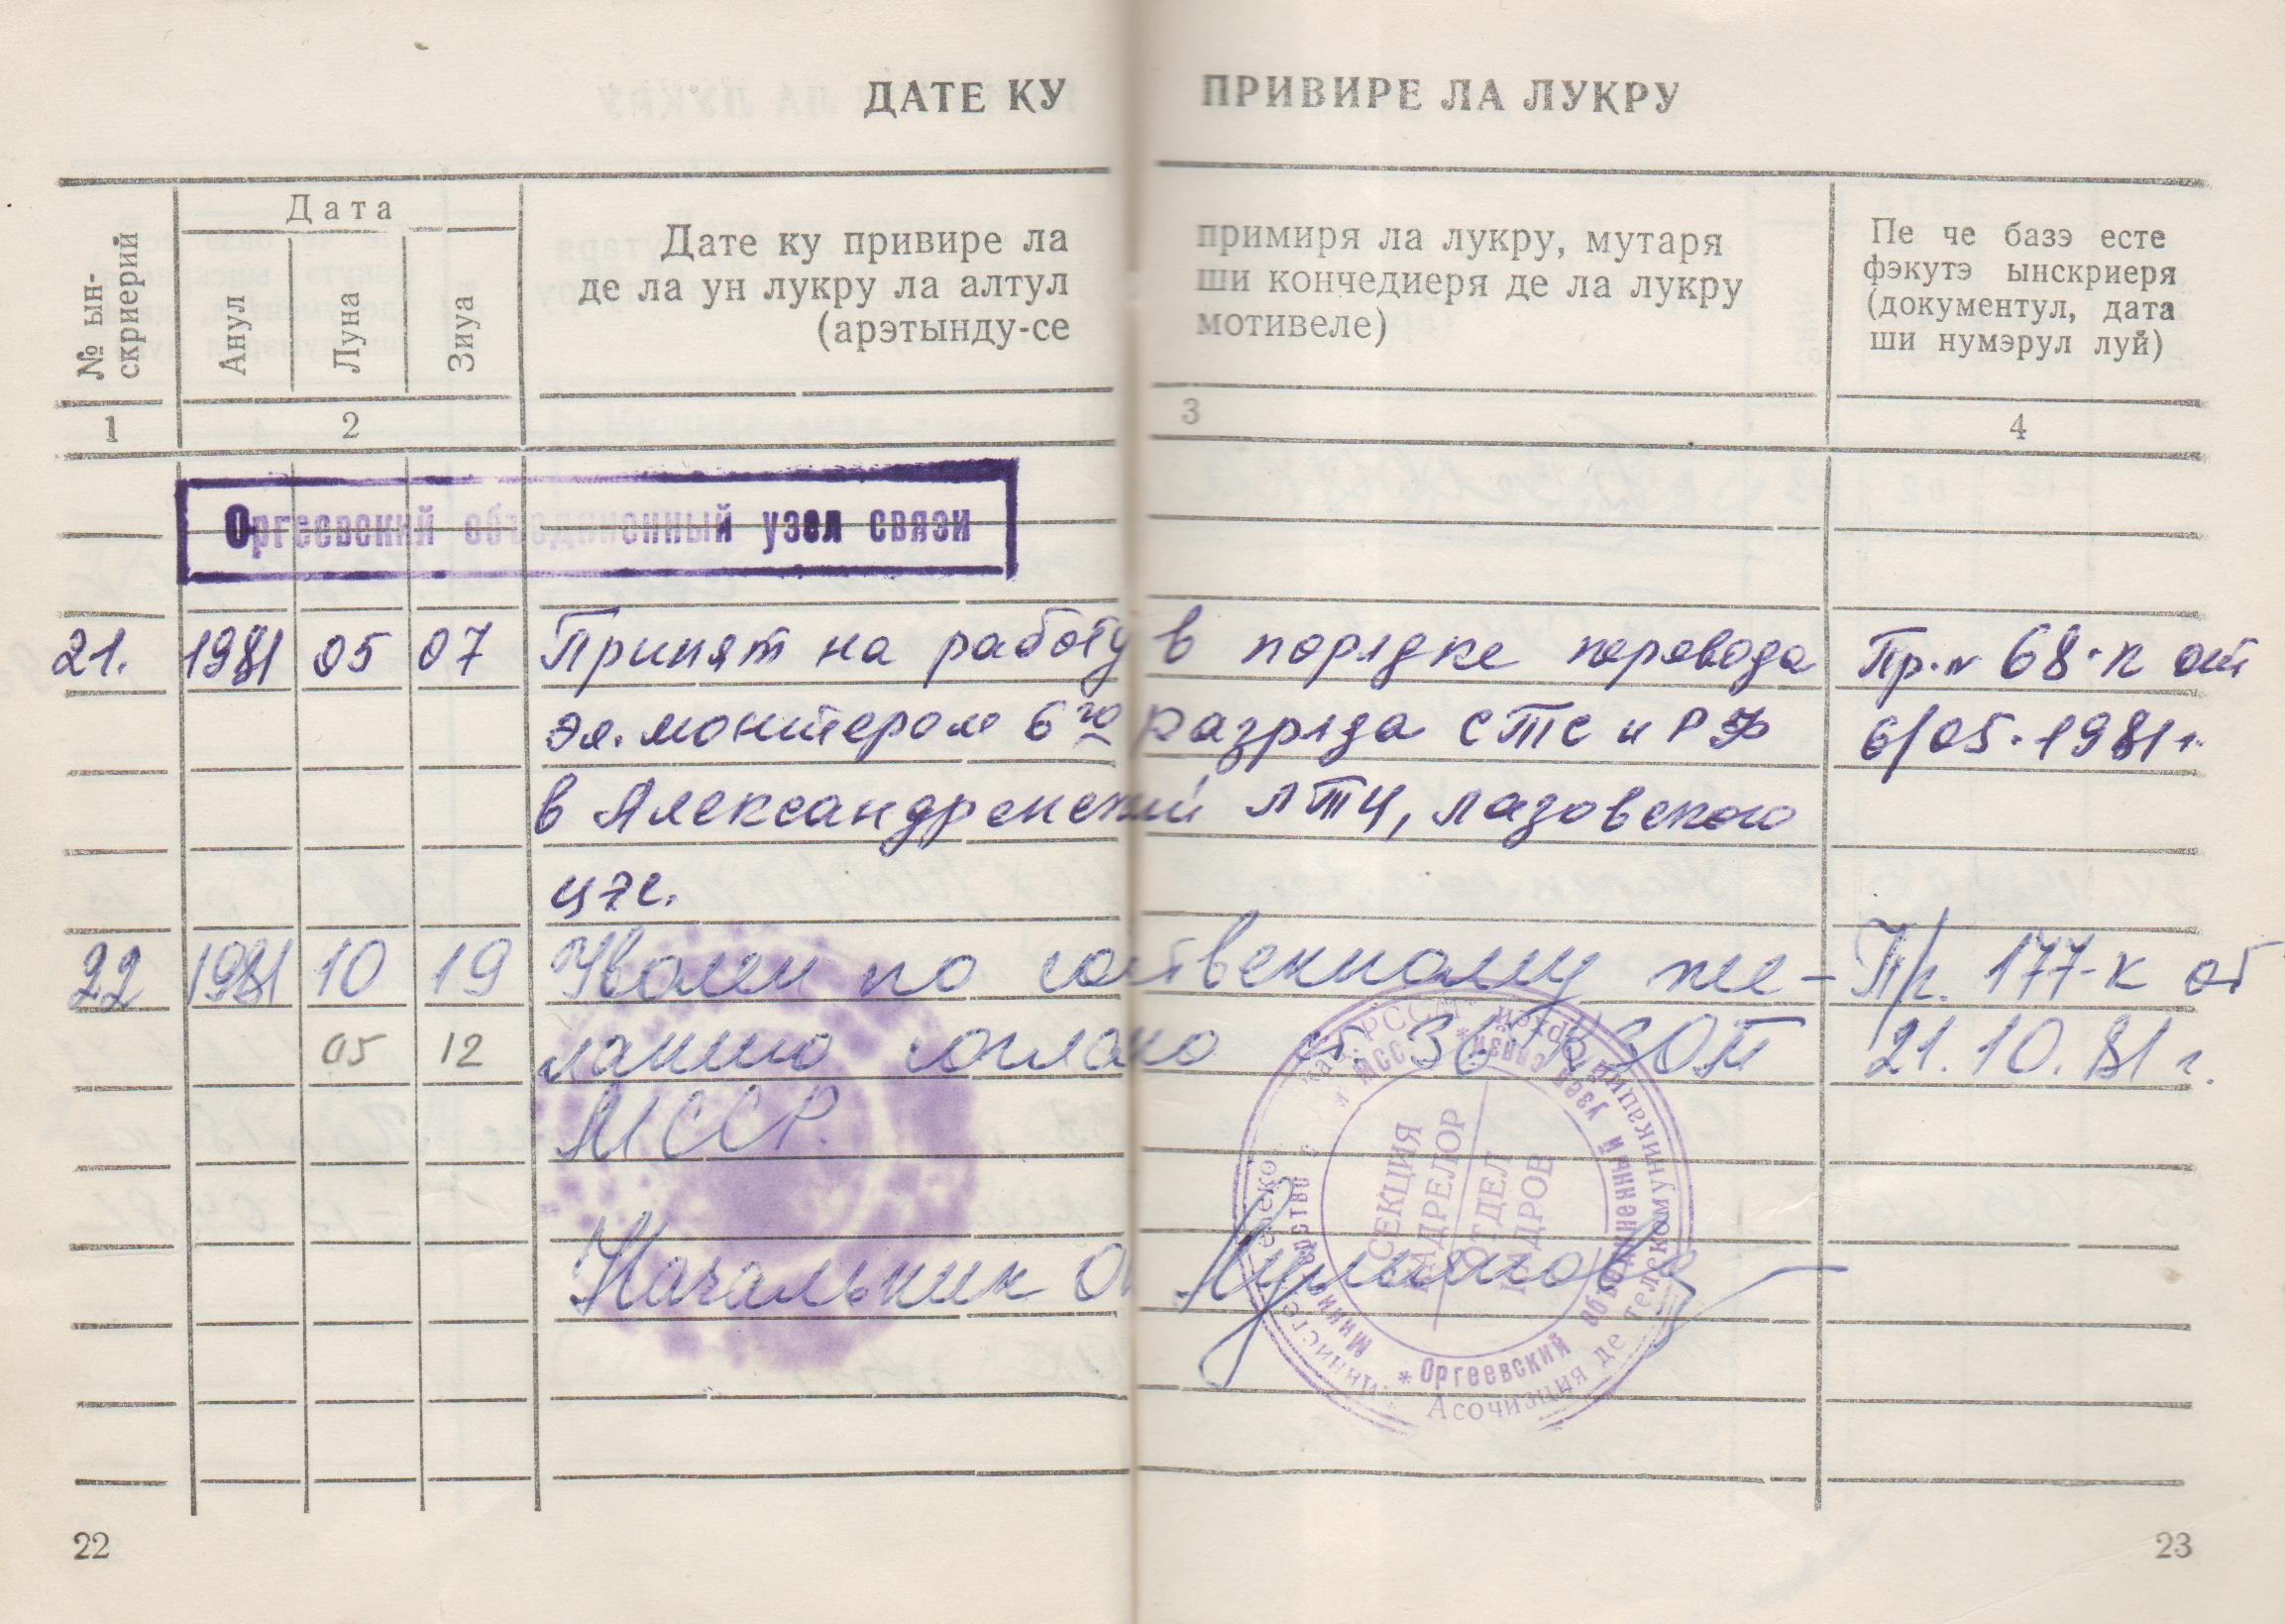 ДАТЕ КУ ПРИВИРЕ ЛА ЛУКРУ
№ ын-
скриерий
Дата
Анул
Луна
Зиуа
Дате ку привире ла примиря ла лукру, мутаря
де ла ун лукру ла алтул ши кончедиеря де ла лукру
(арэтынду-се мотивеле)
Пе че базэ есте
фэкутэ ынскриеря
(документул, дата
ши нумэрул луй)
1 2 3 4
Оргеевский объединенный узел связи
21. 1981 05 07 Принят на работу в порядке перевода Пр. № 68-к от
эл. монтером 6го разряда СТС и РФ 6/05-1981 г.
в Александренский ЛТЦ, Лазовского
22 1981 10 19 Уволен по собственному же- Пр. 177-к от
05 12 ланию согласно ст. 36 КЗОТ 21.10.81 г.
МССР.
Начальник
СЕКЦИЯ
КАДРЕЛОР
ОТДЕЛ
КАДРОВ
* Оргеевский объединенный узел связи *
Асочиэция де телекомуникаций Орхей
22
23